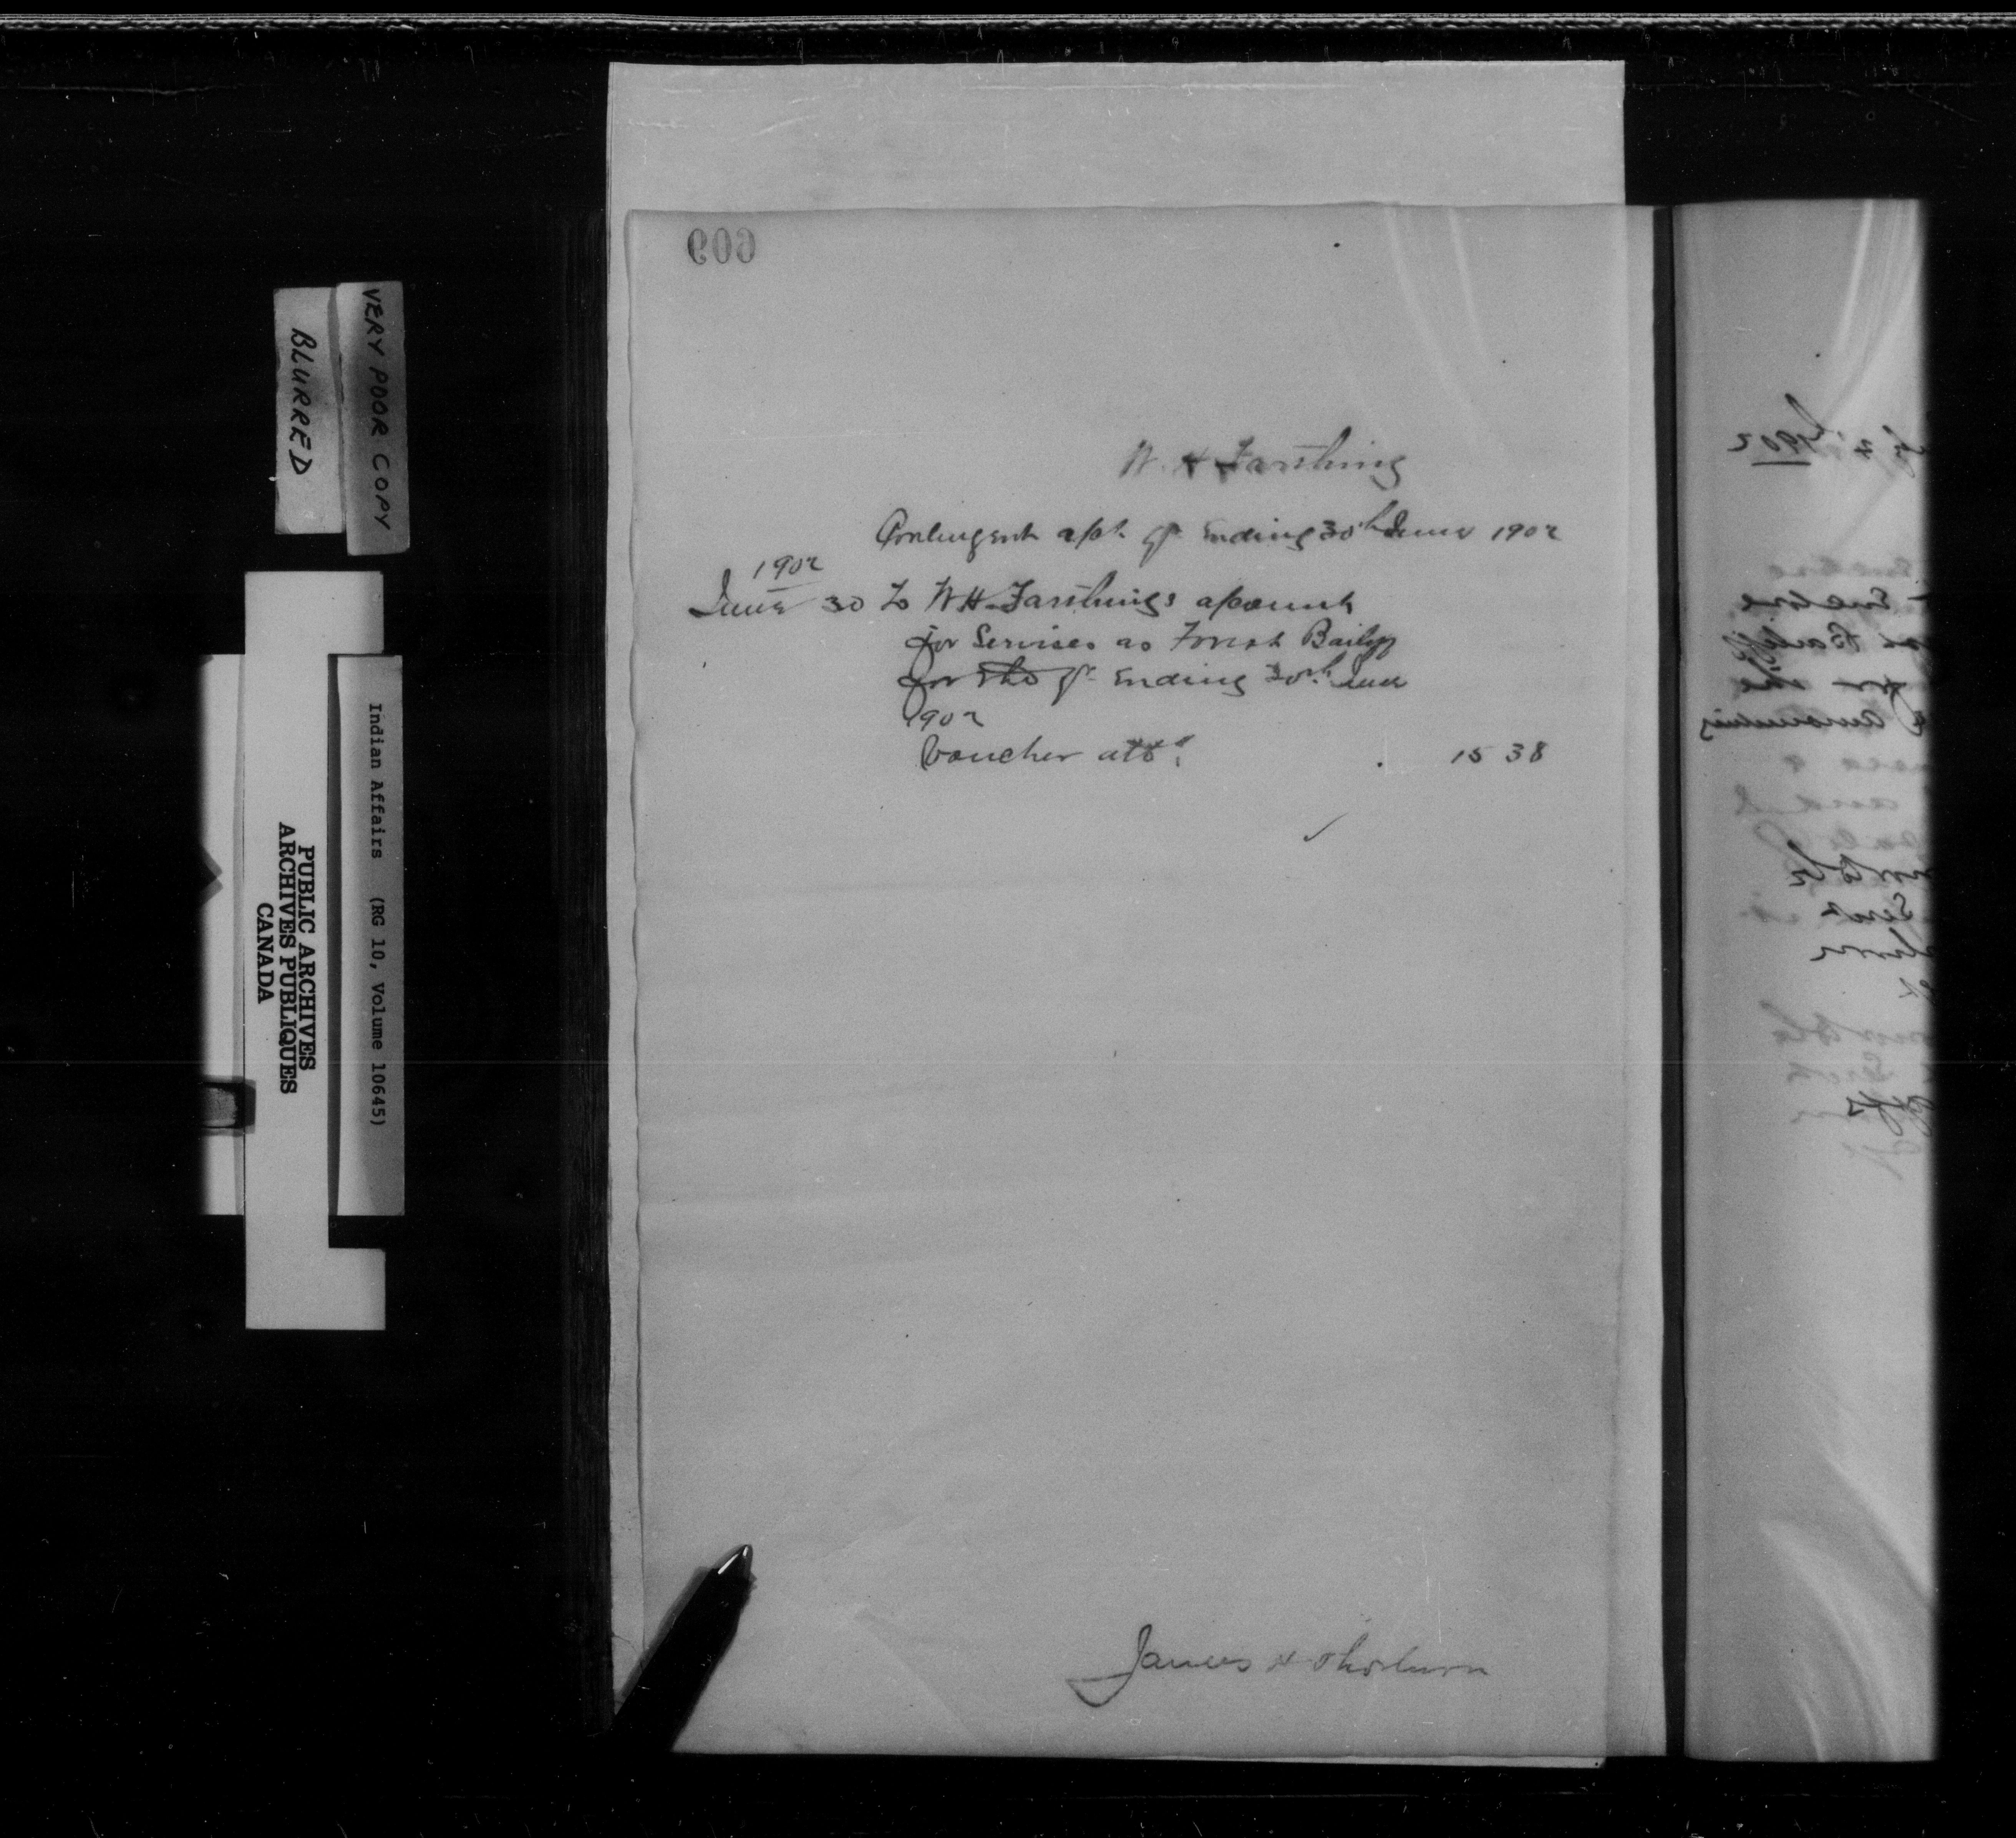 VERY POOR COPY
BLURRED
Indian Affairs (RG 10, Volume 10645)
PUBLIC ARCHIVES
ARCHIVES PUBLIQUES
CANADA
609
W. H Farthing
Contingent a/ct. qr Ending 30th June 1902
1902
June 30 To W H Farthings account
for Servises as Forest Bailiff
for the qr Ending 30th June
1902
Voucher attd. 15 38
James H Thorburn
1902
Enclose
Bailiff
the
amounting
and